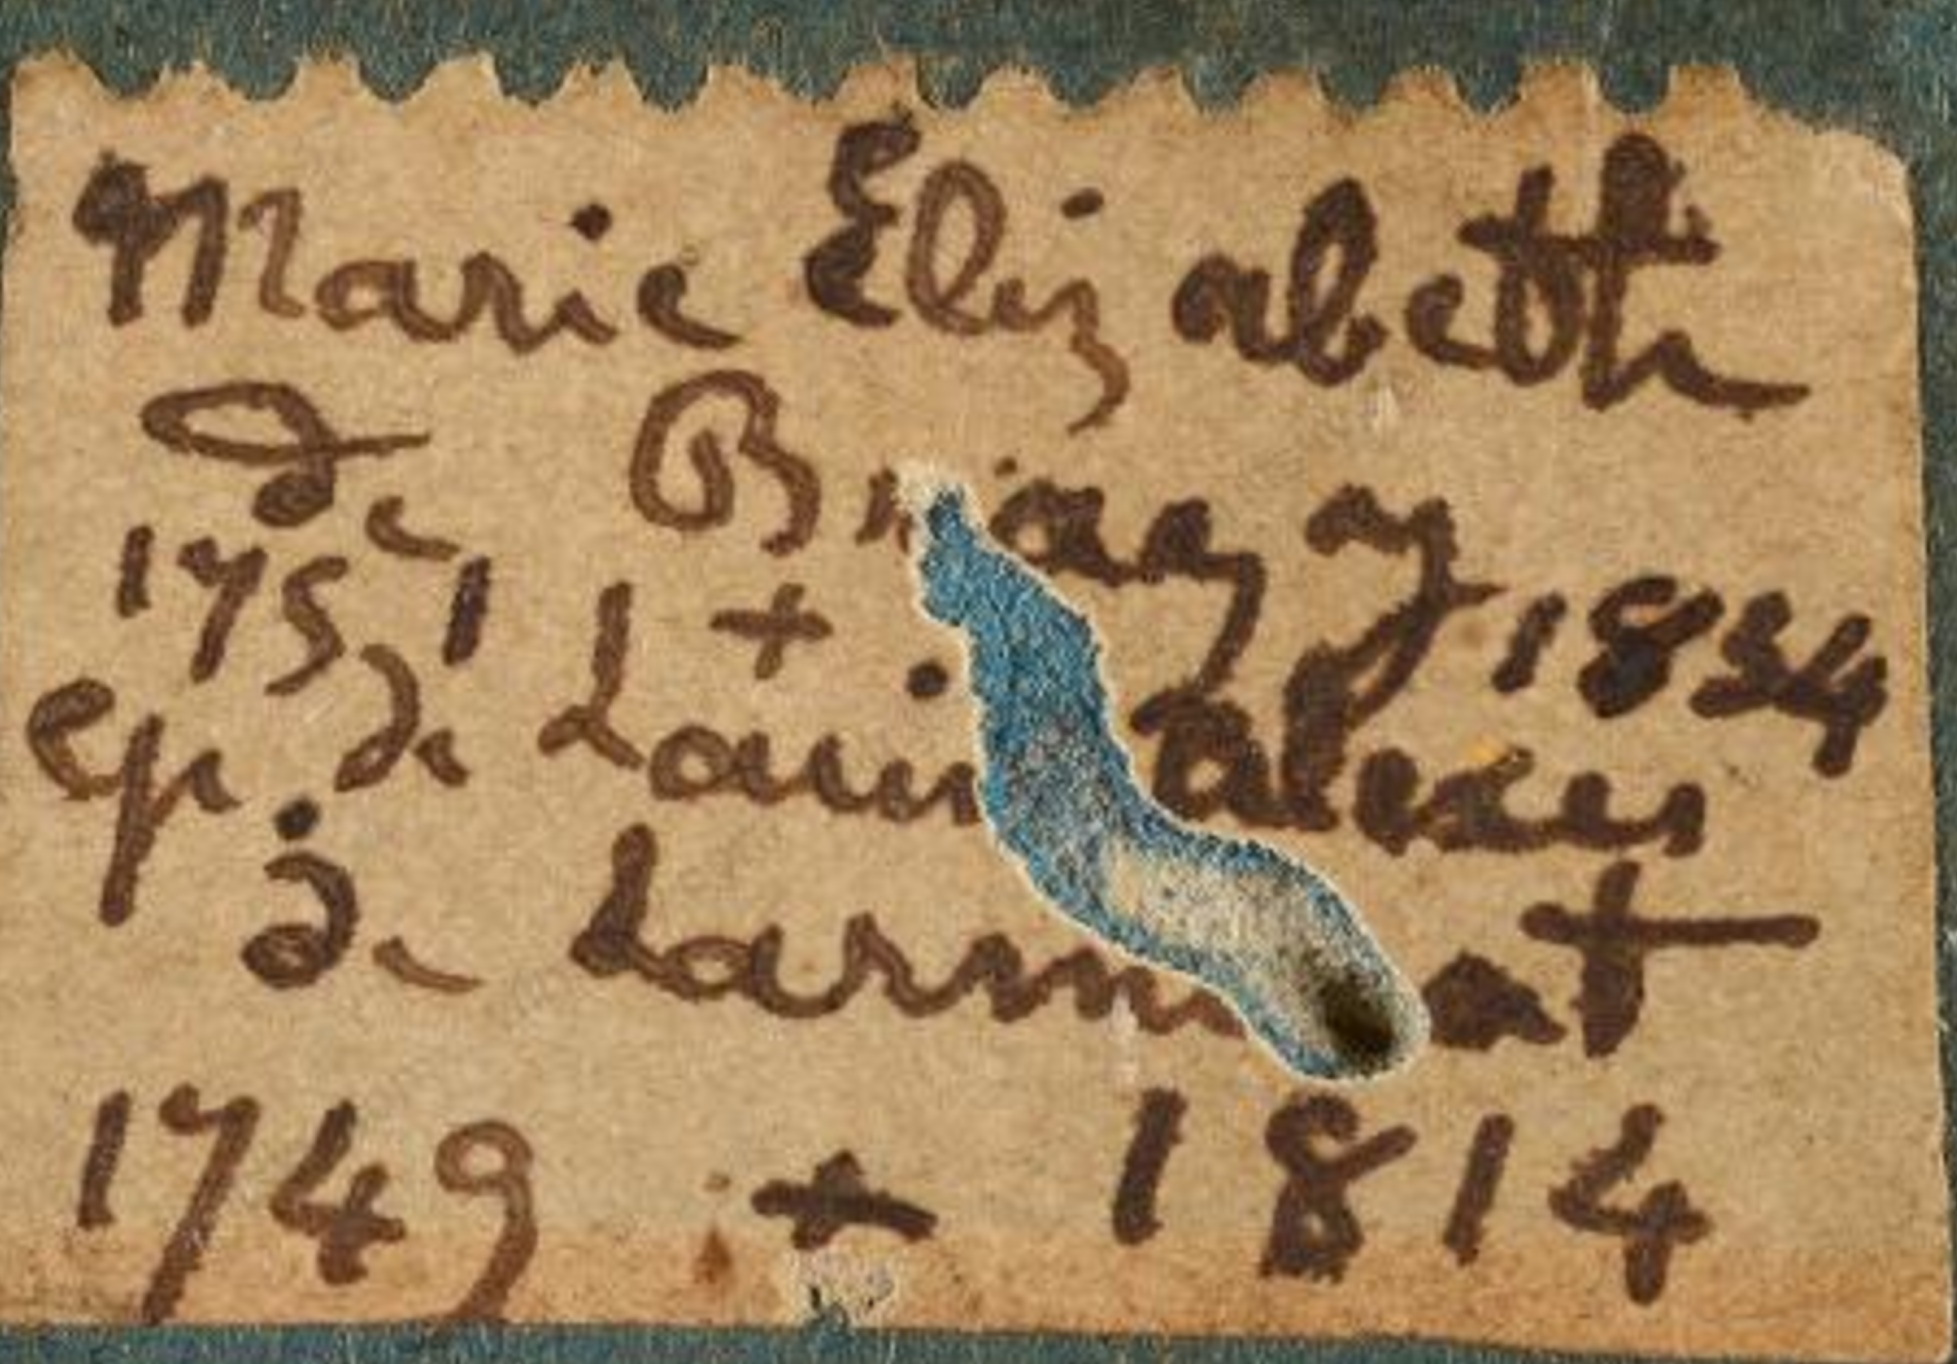 Marie Elizabeth
de
1751 + 1834
ep. de Louis alexis
de
1749 + 1814